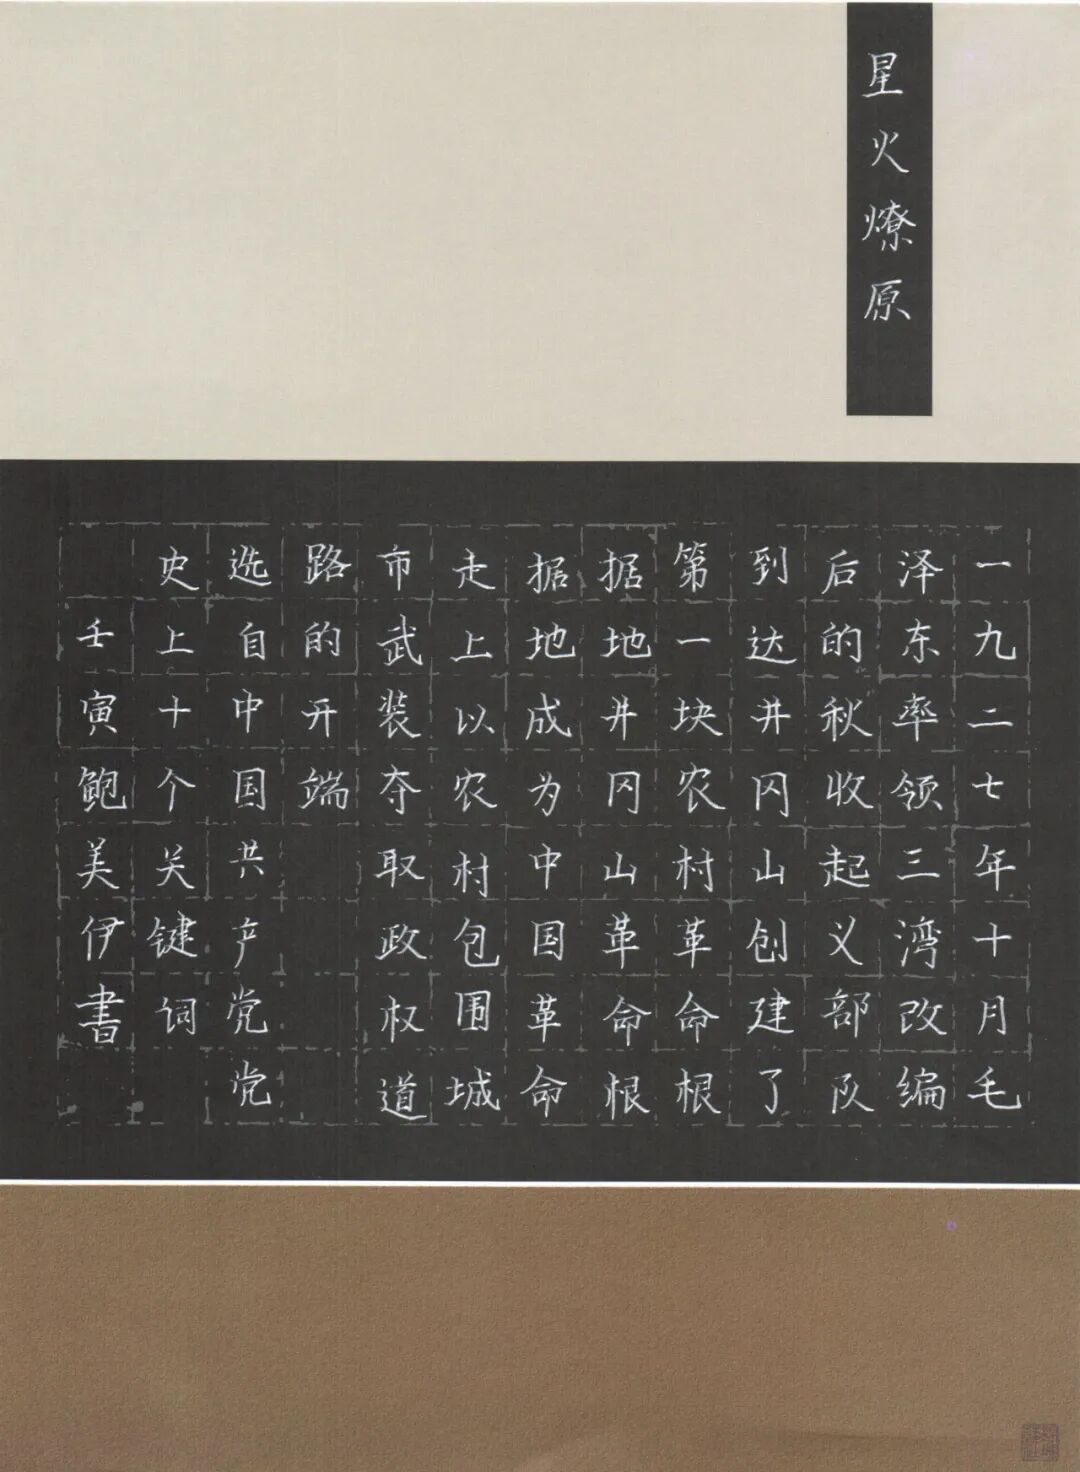 星火燎原
一九二七年十月毛
泽东率领三湾改编
后的秋收起义部队
到达井冈山创建了
第一块农村革命根
据地井冈山革命恨
据地成为中国革命
走上以农村包围城
市武装夺取政权道
路的开端
选自中国共产党党
史上十个关键词
壬寅鲍美伊書